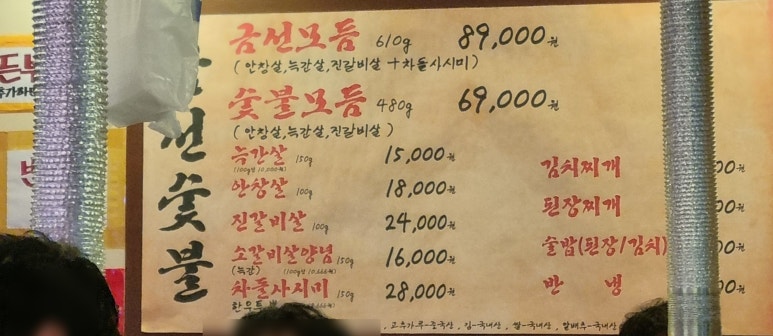 금선모듬 610g 89,000원
(안창살,늑간살,진갈비살 +차돌사시미)
숯불모듬 480g 69,000원
(안창살,늑간살,진갈비살)
늑간살 150g 15,000원
(100g당 10,000원)
안창살 100g 18,000원
진갈비살 100g 24,000원
소갈비살양념 150g 16,000원
(늑간) (100g당 10,666원)
차돌사시미 150g 28,000원
한우특
김치찌개 00원
된장찌개 00원
술밥(된장/김치) 00원
반 냉 00원
고추가루-중국산, 김-국내산, 쌀-국내산, 알배추-국내산
선
숯
불